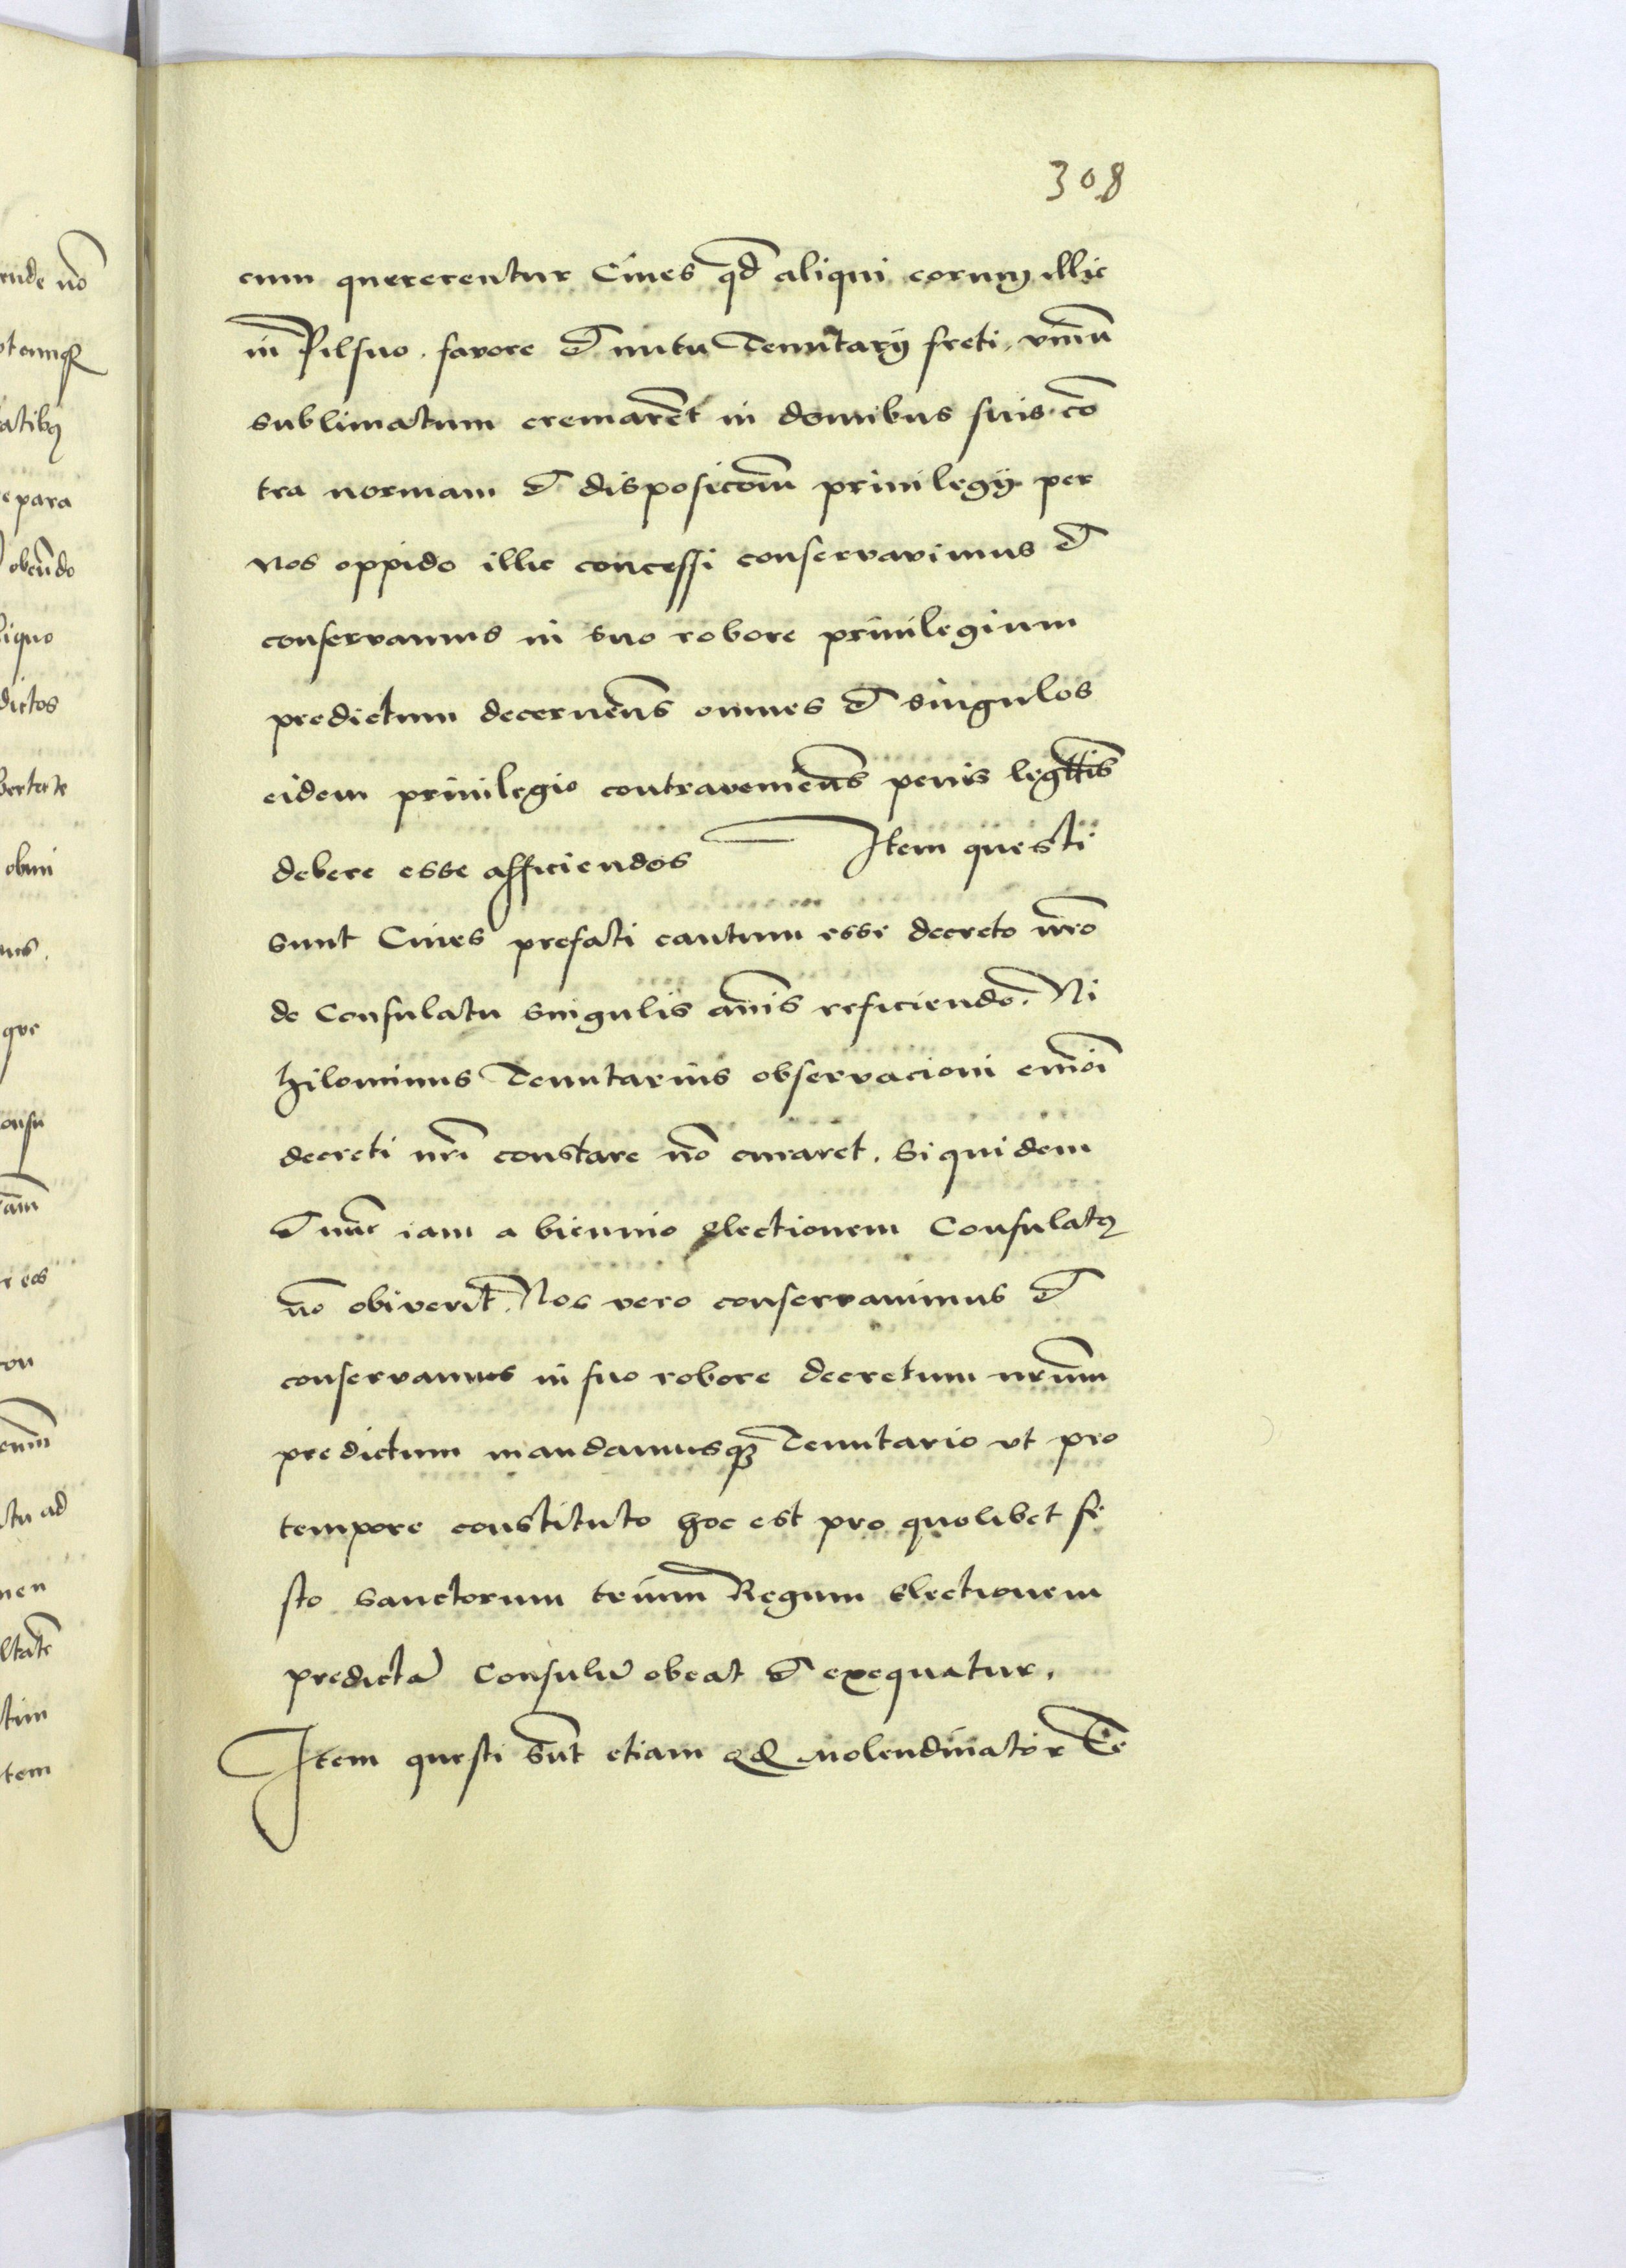 308
cum quererentur Ciues qd aliqui eorum illic
in Pilsno. favore et nutu Tenutarij freti, vinũ
sublimatum cremarẽt in domibus suis cõ
tra normam et disposicõm priuilegij per
nos oppido illic concessi conservavimus et
conservamus in suo robore priuilegium
predictum decernẽns omnes et singulos
eidem priuilegio contravenieñs penis legttĩs
debere esse afficiendos Item questi
sunt Ciues prefati cautum esse decreto nrõ
de Consulatu singulis añis reficiendo. Ni
hilominus Tenutarius observacioni
decreti nrĩ constare nõ curaret. Siquidem
et nũc iam a biennio electionem Consulatꝰ
nõ obiverit. Nos vero conservauimus et
conservamus in suo robore decretum nrũm
predictum mandamusqꝫ Tenutario vt pro
tempore constituto hoc est pro quolibet fe
sto sanctorum trium Regum electionem
predictã Consulũ obeat et exequatur.
Item questi sũt etiam qd Molendinator Te
ende nõ
atibꝫ
para
obeũdo
liquo
dictos
bertate
obui
que
onsu
r eos
con
ctu ad
men
ltatẽ
tim
tem